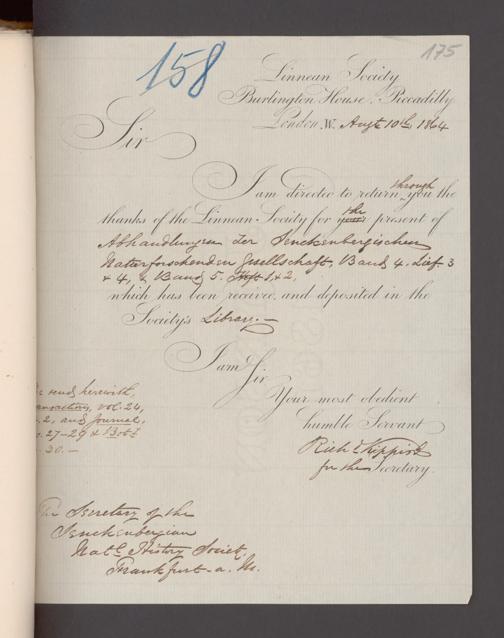 158
175
Linnean Society
Burlington House, Piccadilly
London W. Augt 10th 1864
Sir
I am directed to return through you the
thanks of the Linnean Society for your the present of
Abhandlungen der Senckenbergischen
Naturforschenden Gesellschaft, Band 4. Lief. 3
& 4, & Band 5. Heft 1 & 2,
which has been received, and deposited in the
Society's Library.—
I am
Sir
Your most obedient
humble Servant
Richd Kippist
for the Secretary.
send herewith,
vol. 24,
2, and Journal,
27-29 & Bot.
30.—
The Secretary of the
Senckenbergian
Natl. History Society,
Frankfurt-a. M.